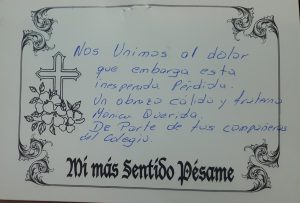 Nos Unimos al dolor
que embarga esta
inesperada Pérdida.
Un abrazo cálido y fraterno
Mónica Querida.
DE Parte de tus compañeras
del Colegio.
Mi más Sentido Pésame